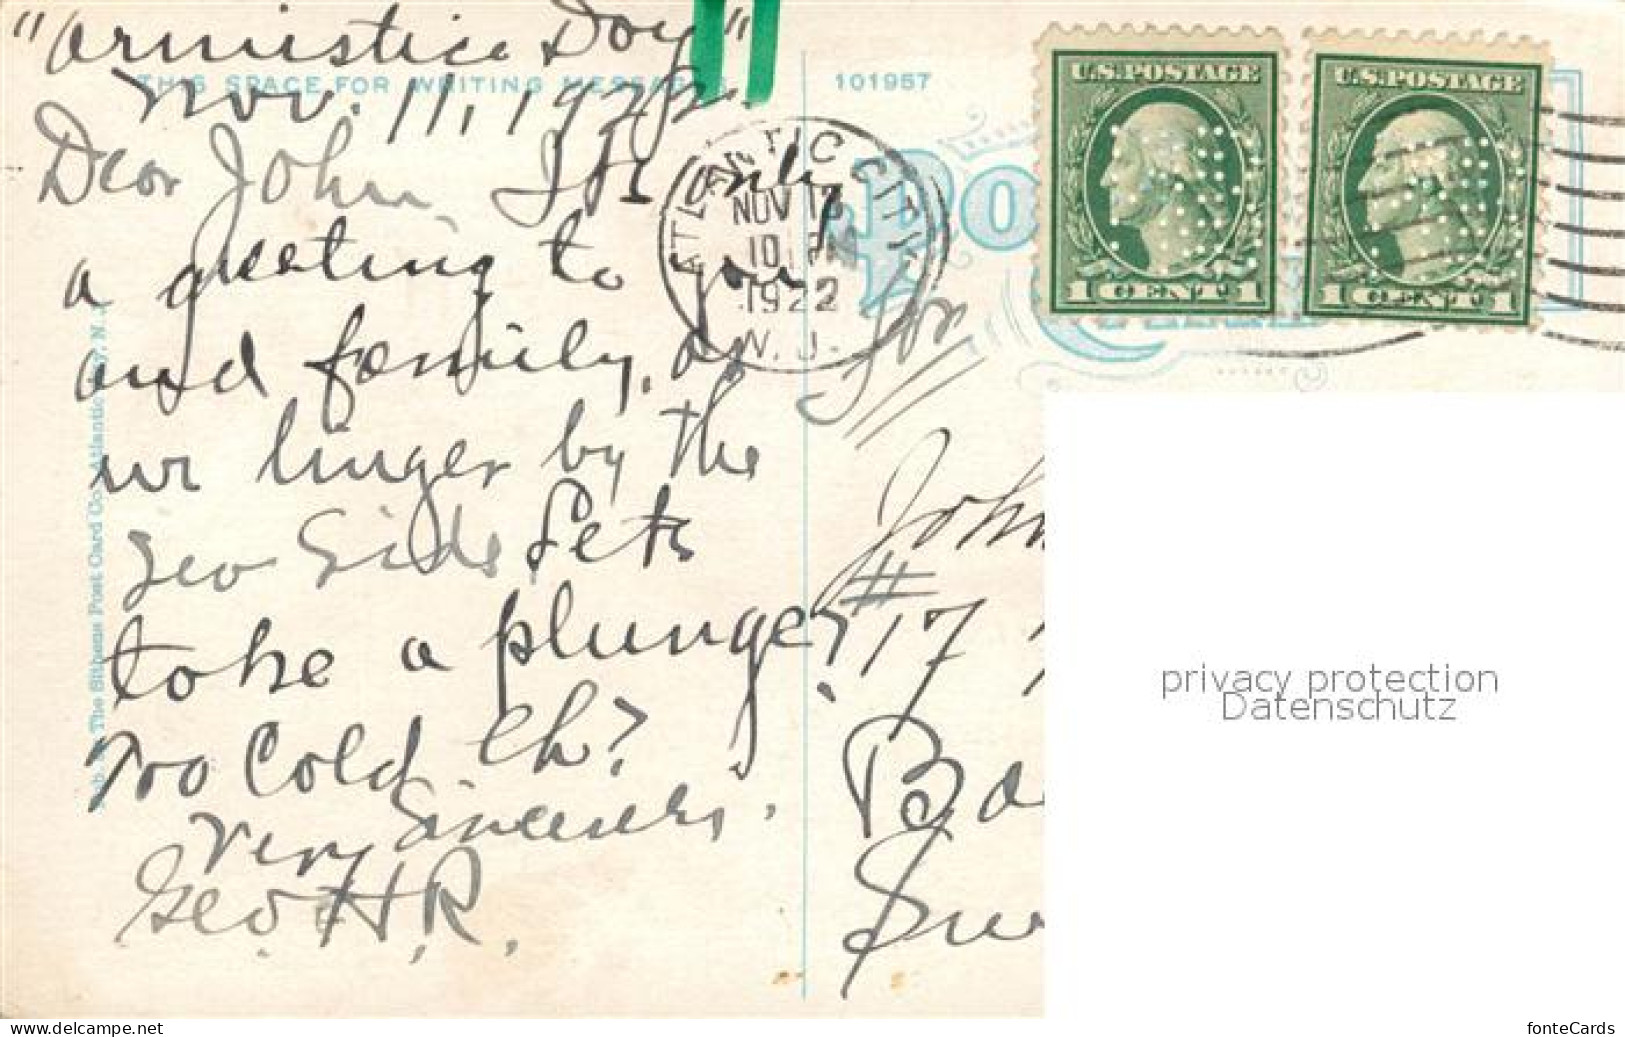 "Armistice Day"
THIS SPACE FOR WRITING MESSAGES
Nov. 11, 1922.
Dear John, Just only
a greeting to you
and family, as
we linger by the
Sea Side, Lets
take a plunge,
Too Cold eh?
Very Sincerely,
Geo. H. R.
Pub. by The Sithens Post Card Co. Atlantic City, N. J.
101957
ATLANTIC CITY
NOV
10
1922
N. J.
U.S. POSTAGE
1 CENT 1
U.S. POSTAGE
1 CENT 1
For
John
#17
privacy protection
Datenschutz
www.oldthing.net
fonteCards